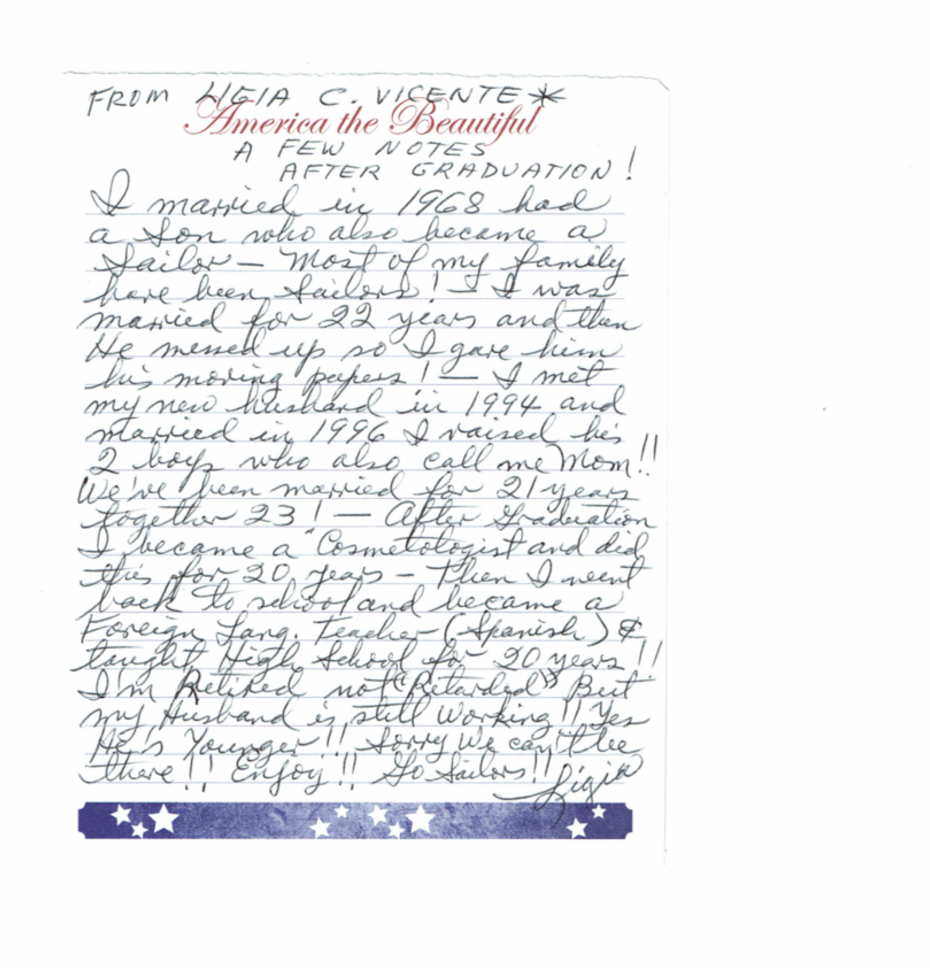 FROM LIGIA C. VICENTE *
America the Beautiful
A FEW NOTES
AFTER GRADUATION!
I married in 1968 had
a Son who also became a
Sailor — Most of my family
have been Sailors! — I was
married for 22 years and then
He messed up so I gave him
his moving papers! — I met
my new husband in 1994 and
married in 1996 I raised his
2 boys who also call me Mom!!
We've been married for 21 years
together 23! — After Graduation
I became a Cosmetologist and did
this for 20 years — Then I went
back to school and became a
Foreign Lang. Teacher (Spanish) &
taught High School for 20 years!!
I'm Retired not "Retarded" But
my Husband is still working!! Yes
He's Younger!! Sorry We can't be
there!! Enjoy!! Go Sailors!!
Ligia